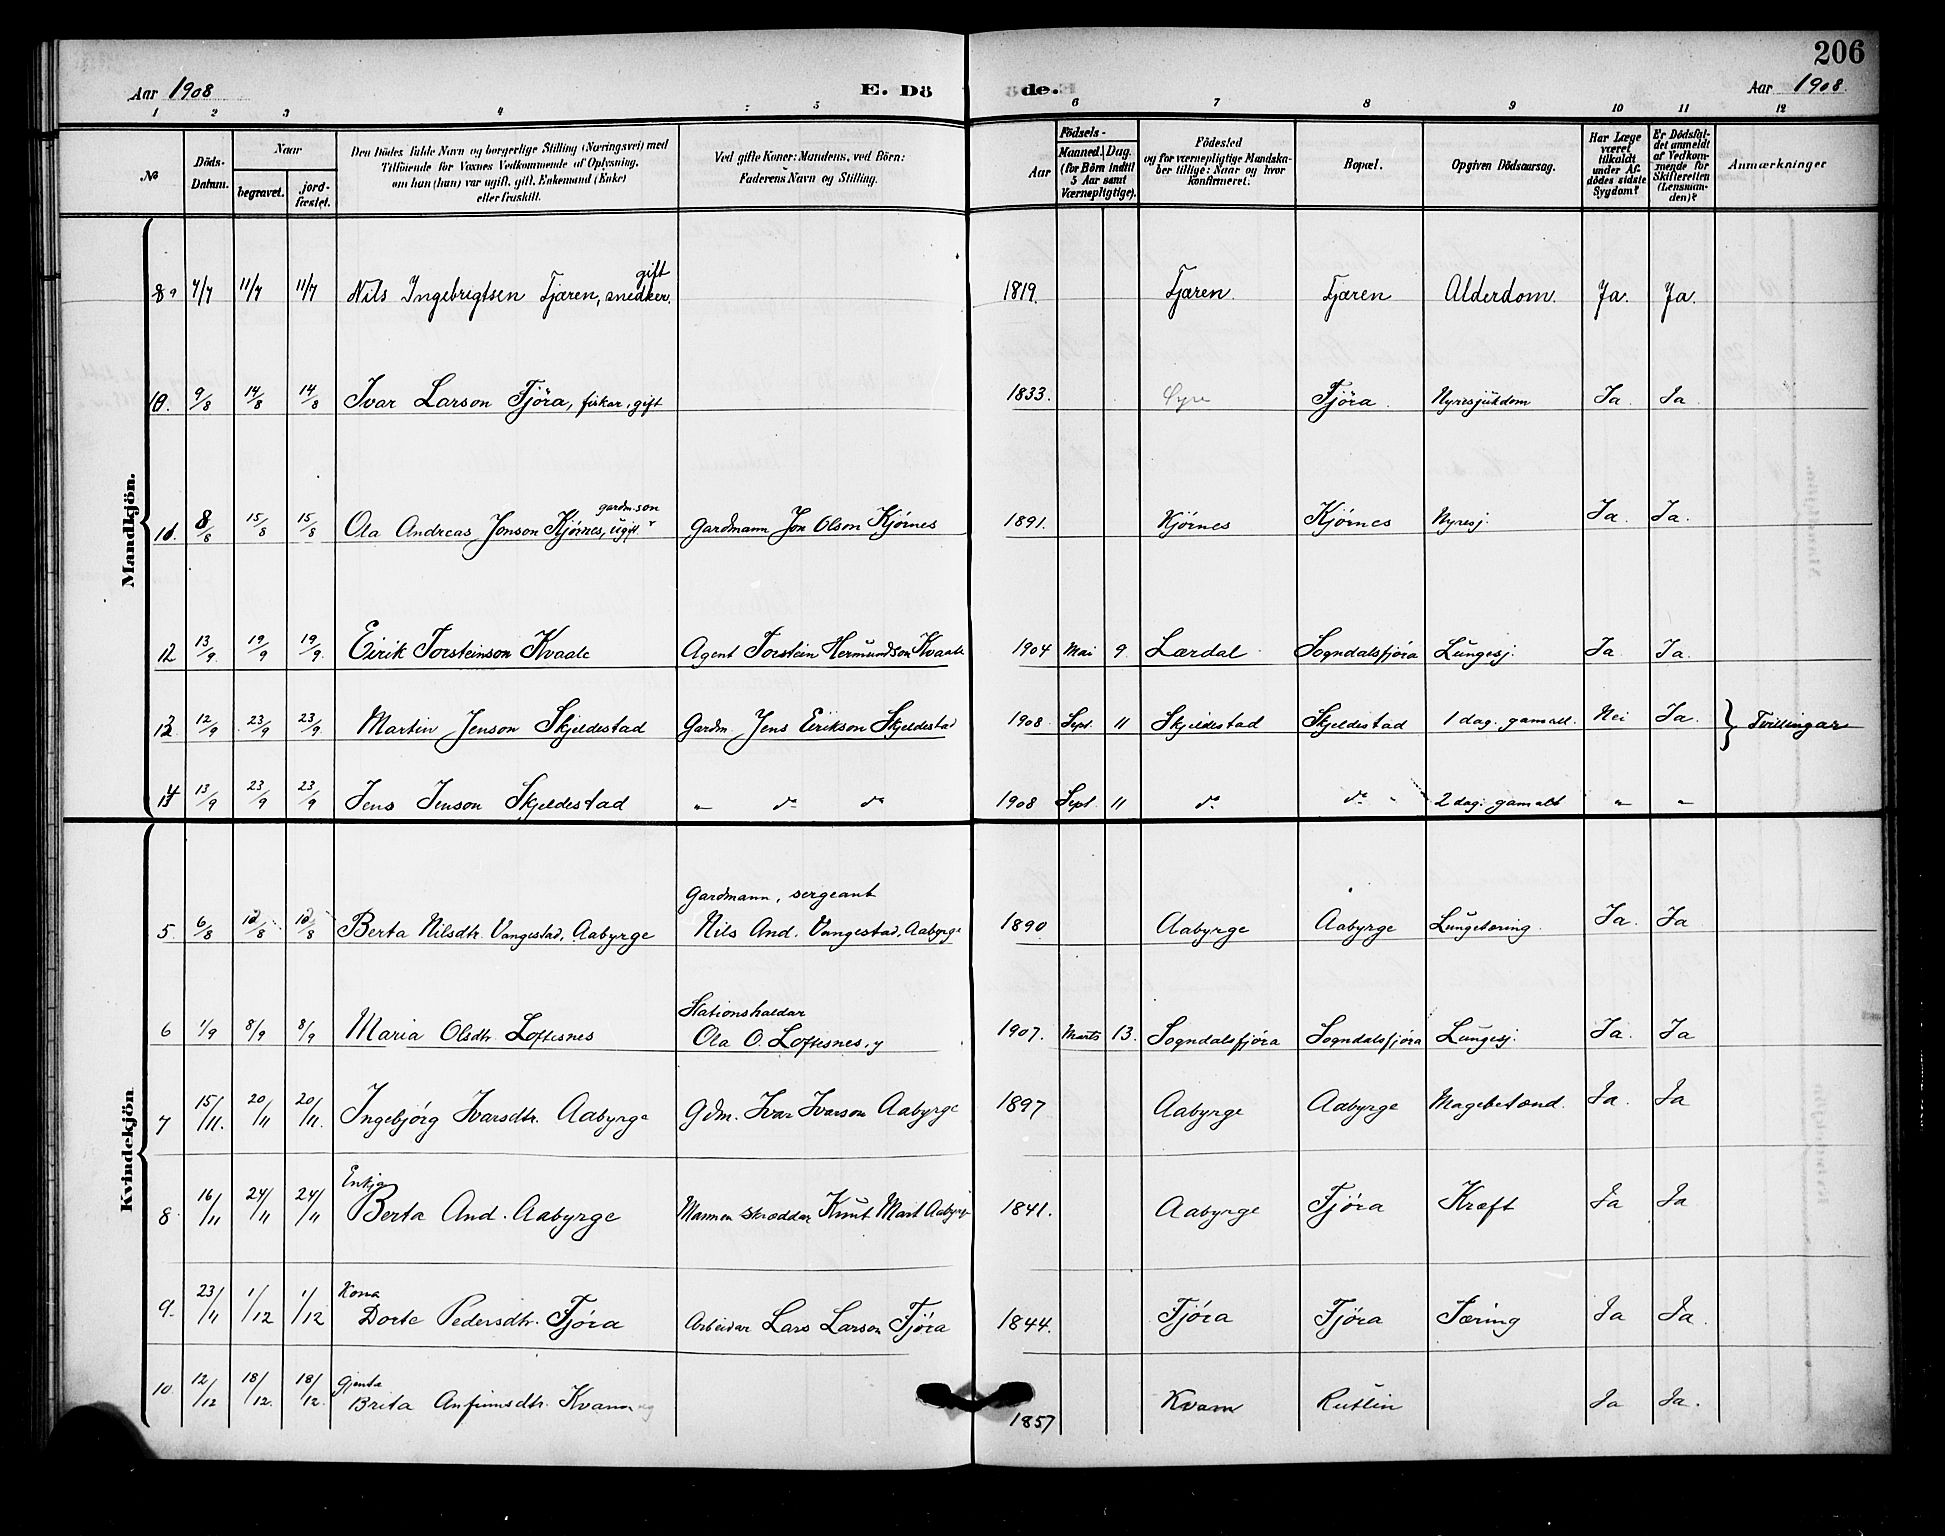 206
Aar 1908 E. Dö de. Aar 1908.
1 2 3 4 5 6 7 8 9 10 11 12
No
Döds-Datum.
Naar begravet. jordfæstet.
Den Dödes fulde Navn og borgerlige Stilling (Næringsvei) med Tilföiende for Voxnes Vedkommende af Oplysning, om hun (han) var ugift, gift, Enkemand (Enke) eller fraskilt.
Ved gifte Koner: Mandens, ved Börn: Faderens Navn og Stilling.
Aar
Födsels- Maaned. Dag. (for Börn indtil 5 Aar samt Værnepligtige).
Födested og for værnepligtige Mandskaber tillige: Naar og hvor konfirmeret.
Bopæl.
Opgiven Dödsaarsag.
Har Læge været tilkaldt under Afdödes sidste Sygdom?
Er Dödsfaldet anmeldt af Vedkommende for Skifteretten (Lensmanden)?
Anmærkninger
Mandkjön.
gift
9 4/7 11/7 11/7 Nils Ingebrigtsen Fjæren, snedker. 1819. Fjæren. Fjæren Alderdom. Ja. Ja.
10. 9/8 14/8 14/8 Ivar Larson Fjöra, fiskar, gift 1833. Fjöra. Nyresjukdom Ja. Ja
gardmson
11. 8/8 15/8 15/8 Ola Andreas Jonson Kjørnes, ugift Gardmann Jon Olson Kjørnes 1891. Kjørnes Kjørnes Nyresj. Ja. Ja.
12 13/9 19/9 19/9 Eirik Torsteinson Kvaale Agent Torstein Hermundson Kvaale 1904 Mai 9 Lærdal Sogndalsfjøra Lungesj. Ja Ja.
13 12/9 23/9 23/9 Martin Jenson Skjeldestad Gardm. Jens Eirikson Skjeldestad 1908. Sept. 11 Skjeldestad Skjeldestad 1 dag. gamall. Nei Ja. } Tvillingar
14 13/9 23/9 23/9 Jens Jenson Skjeldestad " do do 1908 Sept. 11 do do 2 dag. gamall " "
Kvindekjön
Gardmann, sergeant
5. 6/8 12/8 12/8 Berta Nilsdtr. Vangestad, Aabyrge Nils And. Vangestad, Aabyrge 1890 Aabyrge Aabyrge Lungetæring. Ja. Ja
Stationshaldar
6 1/9 8/9 8/9 Maria Olsdtr. Loftesnes Ola O. Loftesnes, y 1907. Marts 13. Sogndalsfjøra Sogndalsfjøra Lungesj. Ja. Ja
7 15/11. 20/11 20/11. Ingebjörg Ivarsdtr. Aabyrge Gdm. Ivar Ivarson Aabyrge 1897 Aabyrge Aabyrge Magebetænd. Ja. Ja
Enkja
8 16/11 24/11 24/11 Berta And. Aabyrge Mannen skræddar Knut Mart Aabyrge 1841. Aabyrge Fjøra Kræft Ja Ja
Kona
9. 23/11 1/12 1/12 Dorte Pedersdtr. Fjøra Arbeidar Lars Larson Fjøra 1844. Fjøra Fjøra Tæring Ja Ja.
Gjenta
10. 12/12 18/12. 18/12. Brita Anfinnsdtr. Kvam 1857 Kvam Rutlin Ja Ja.